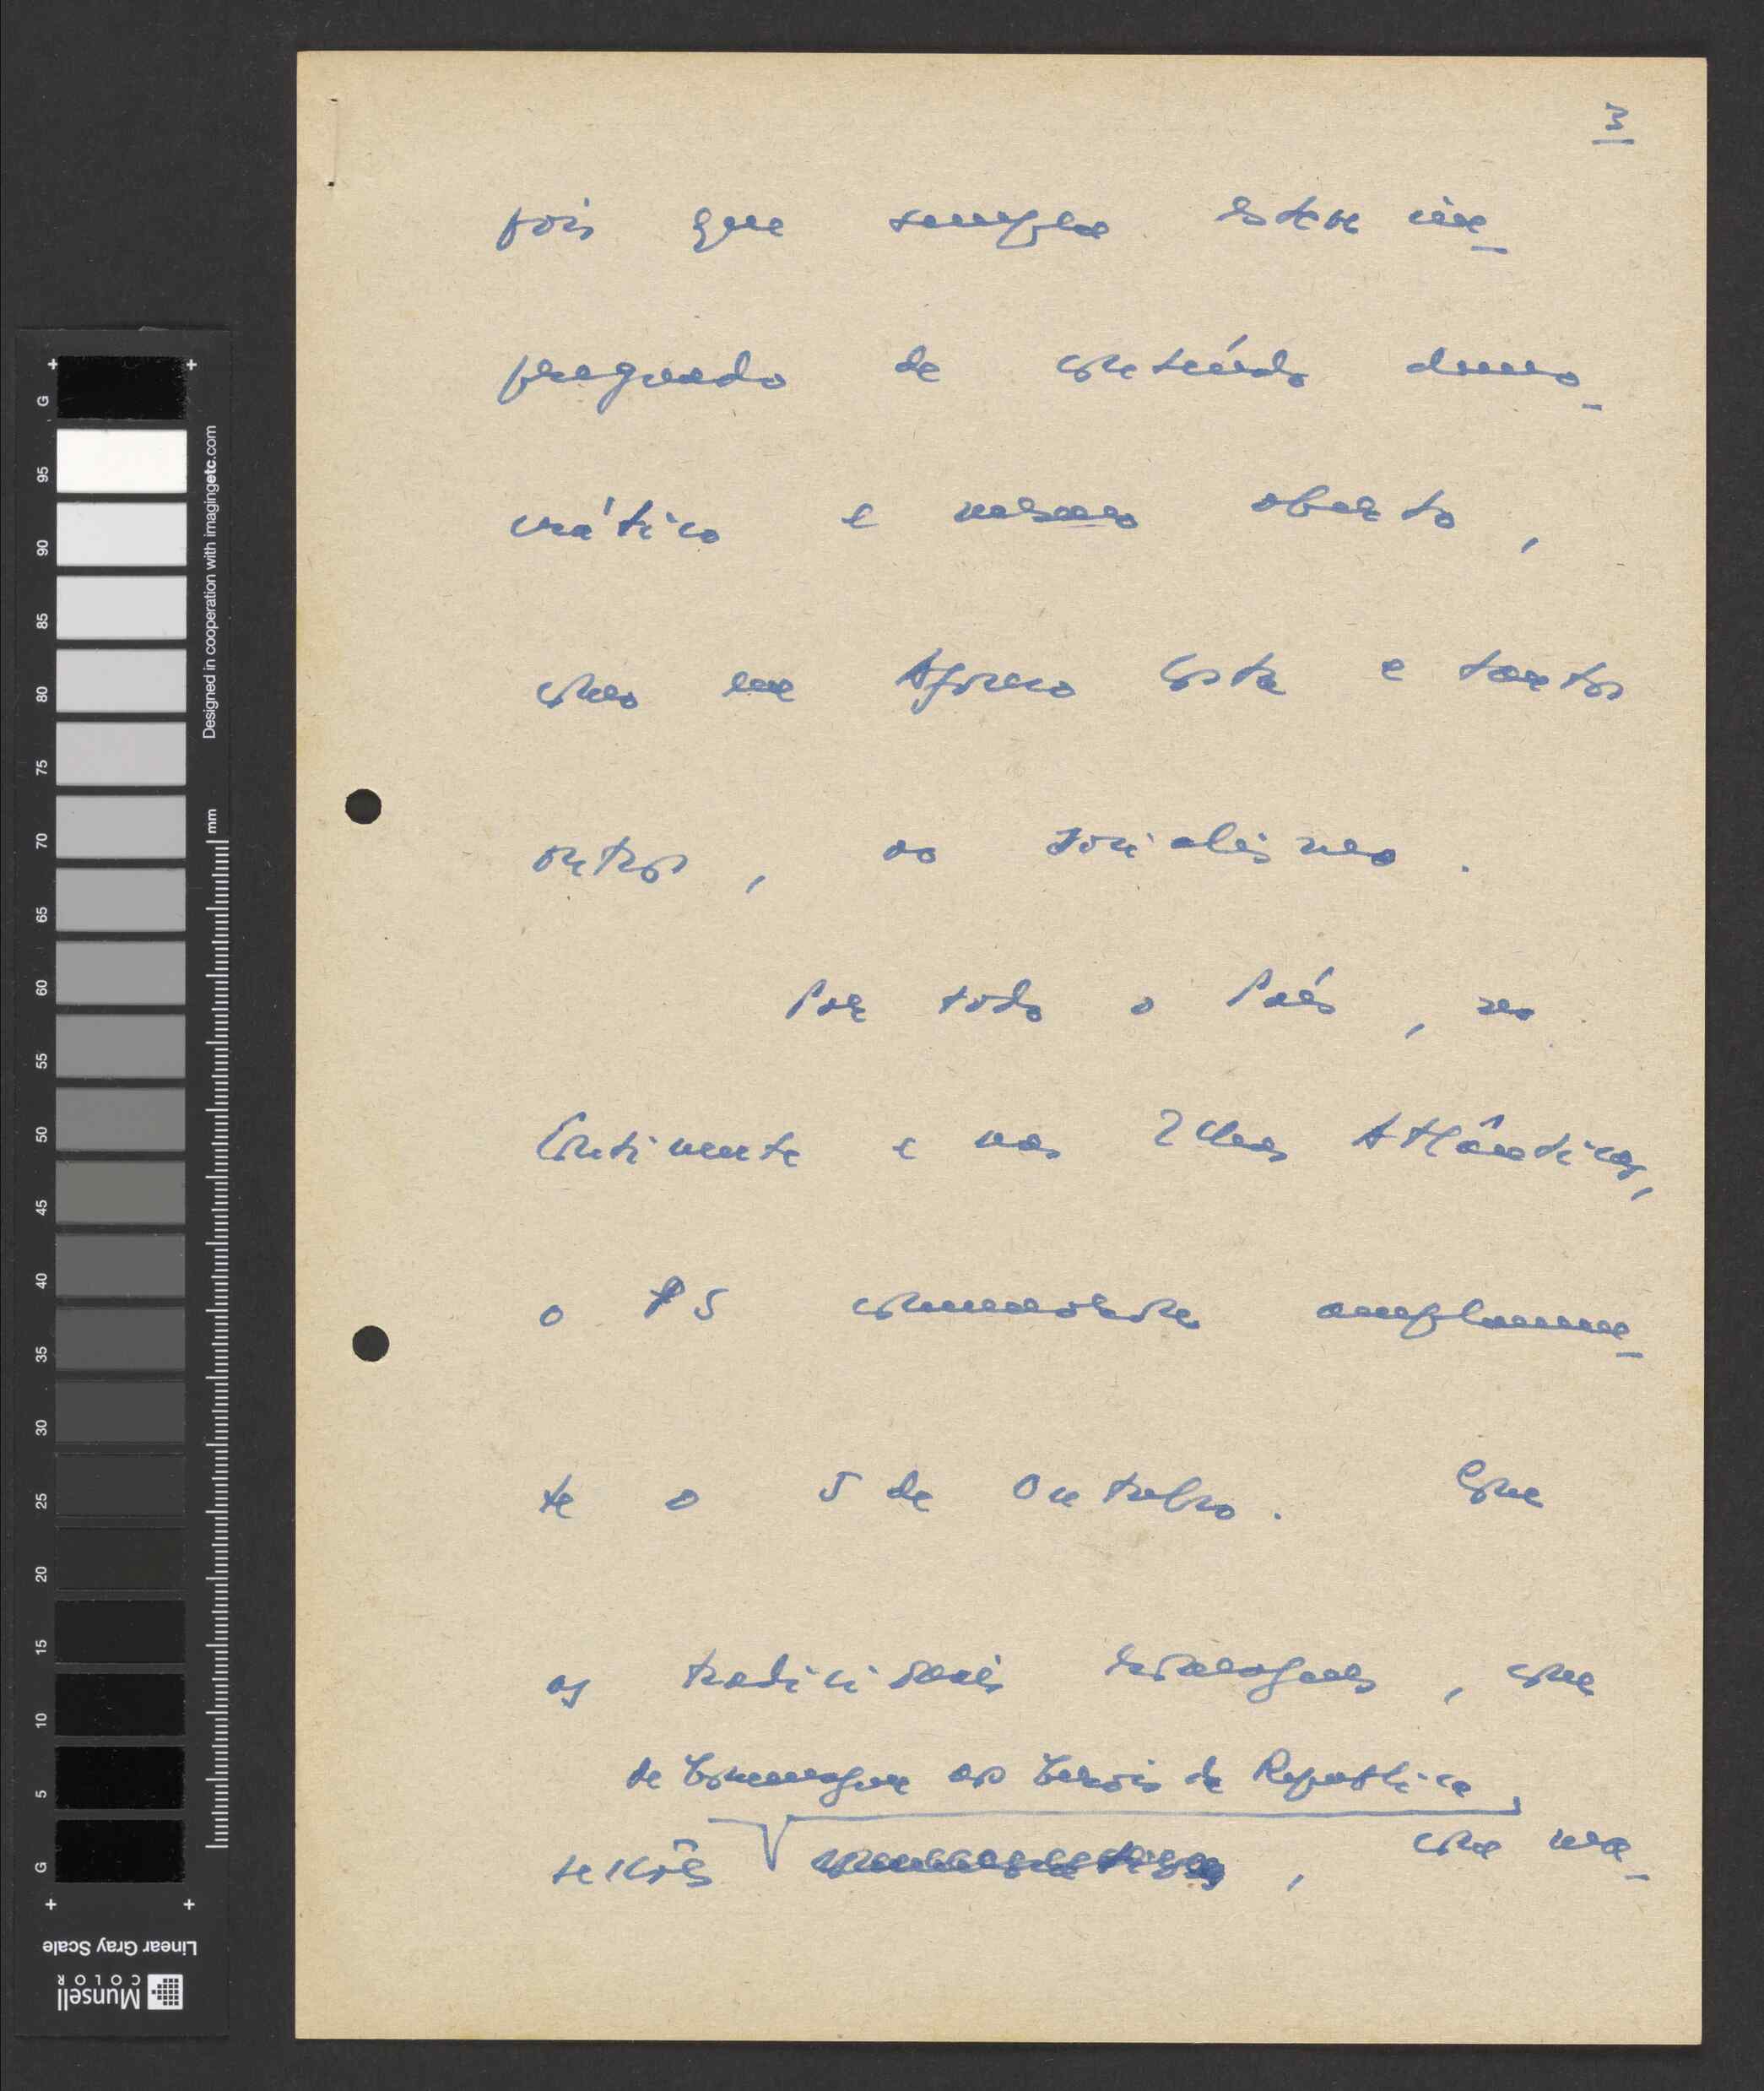 3
pois que sempre esteve im-
pregnado de conteúdo demo-
crático e mesmo aberto,
como em Afonso Costa e tantos
outros, ao socialismo.
Por todo o País, no
Continente e nas Ilhas Atlânticas,
o PS comemorará amplamen-
te o 5 de Outubro. Com
as tradicionais romagens, com
de homenagem aos heróis da República,
sessões, com ma-
G
95
90
85
80
75
70
65
60
55
50
45
40
35
30
25
20
15
10
5
G
Designed in cooperation with imagingetc.com
mm
Linear Gray Scale
Munsell
COLOR